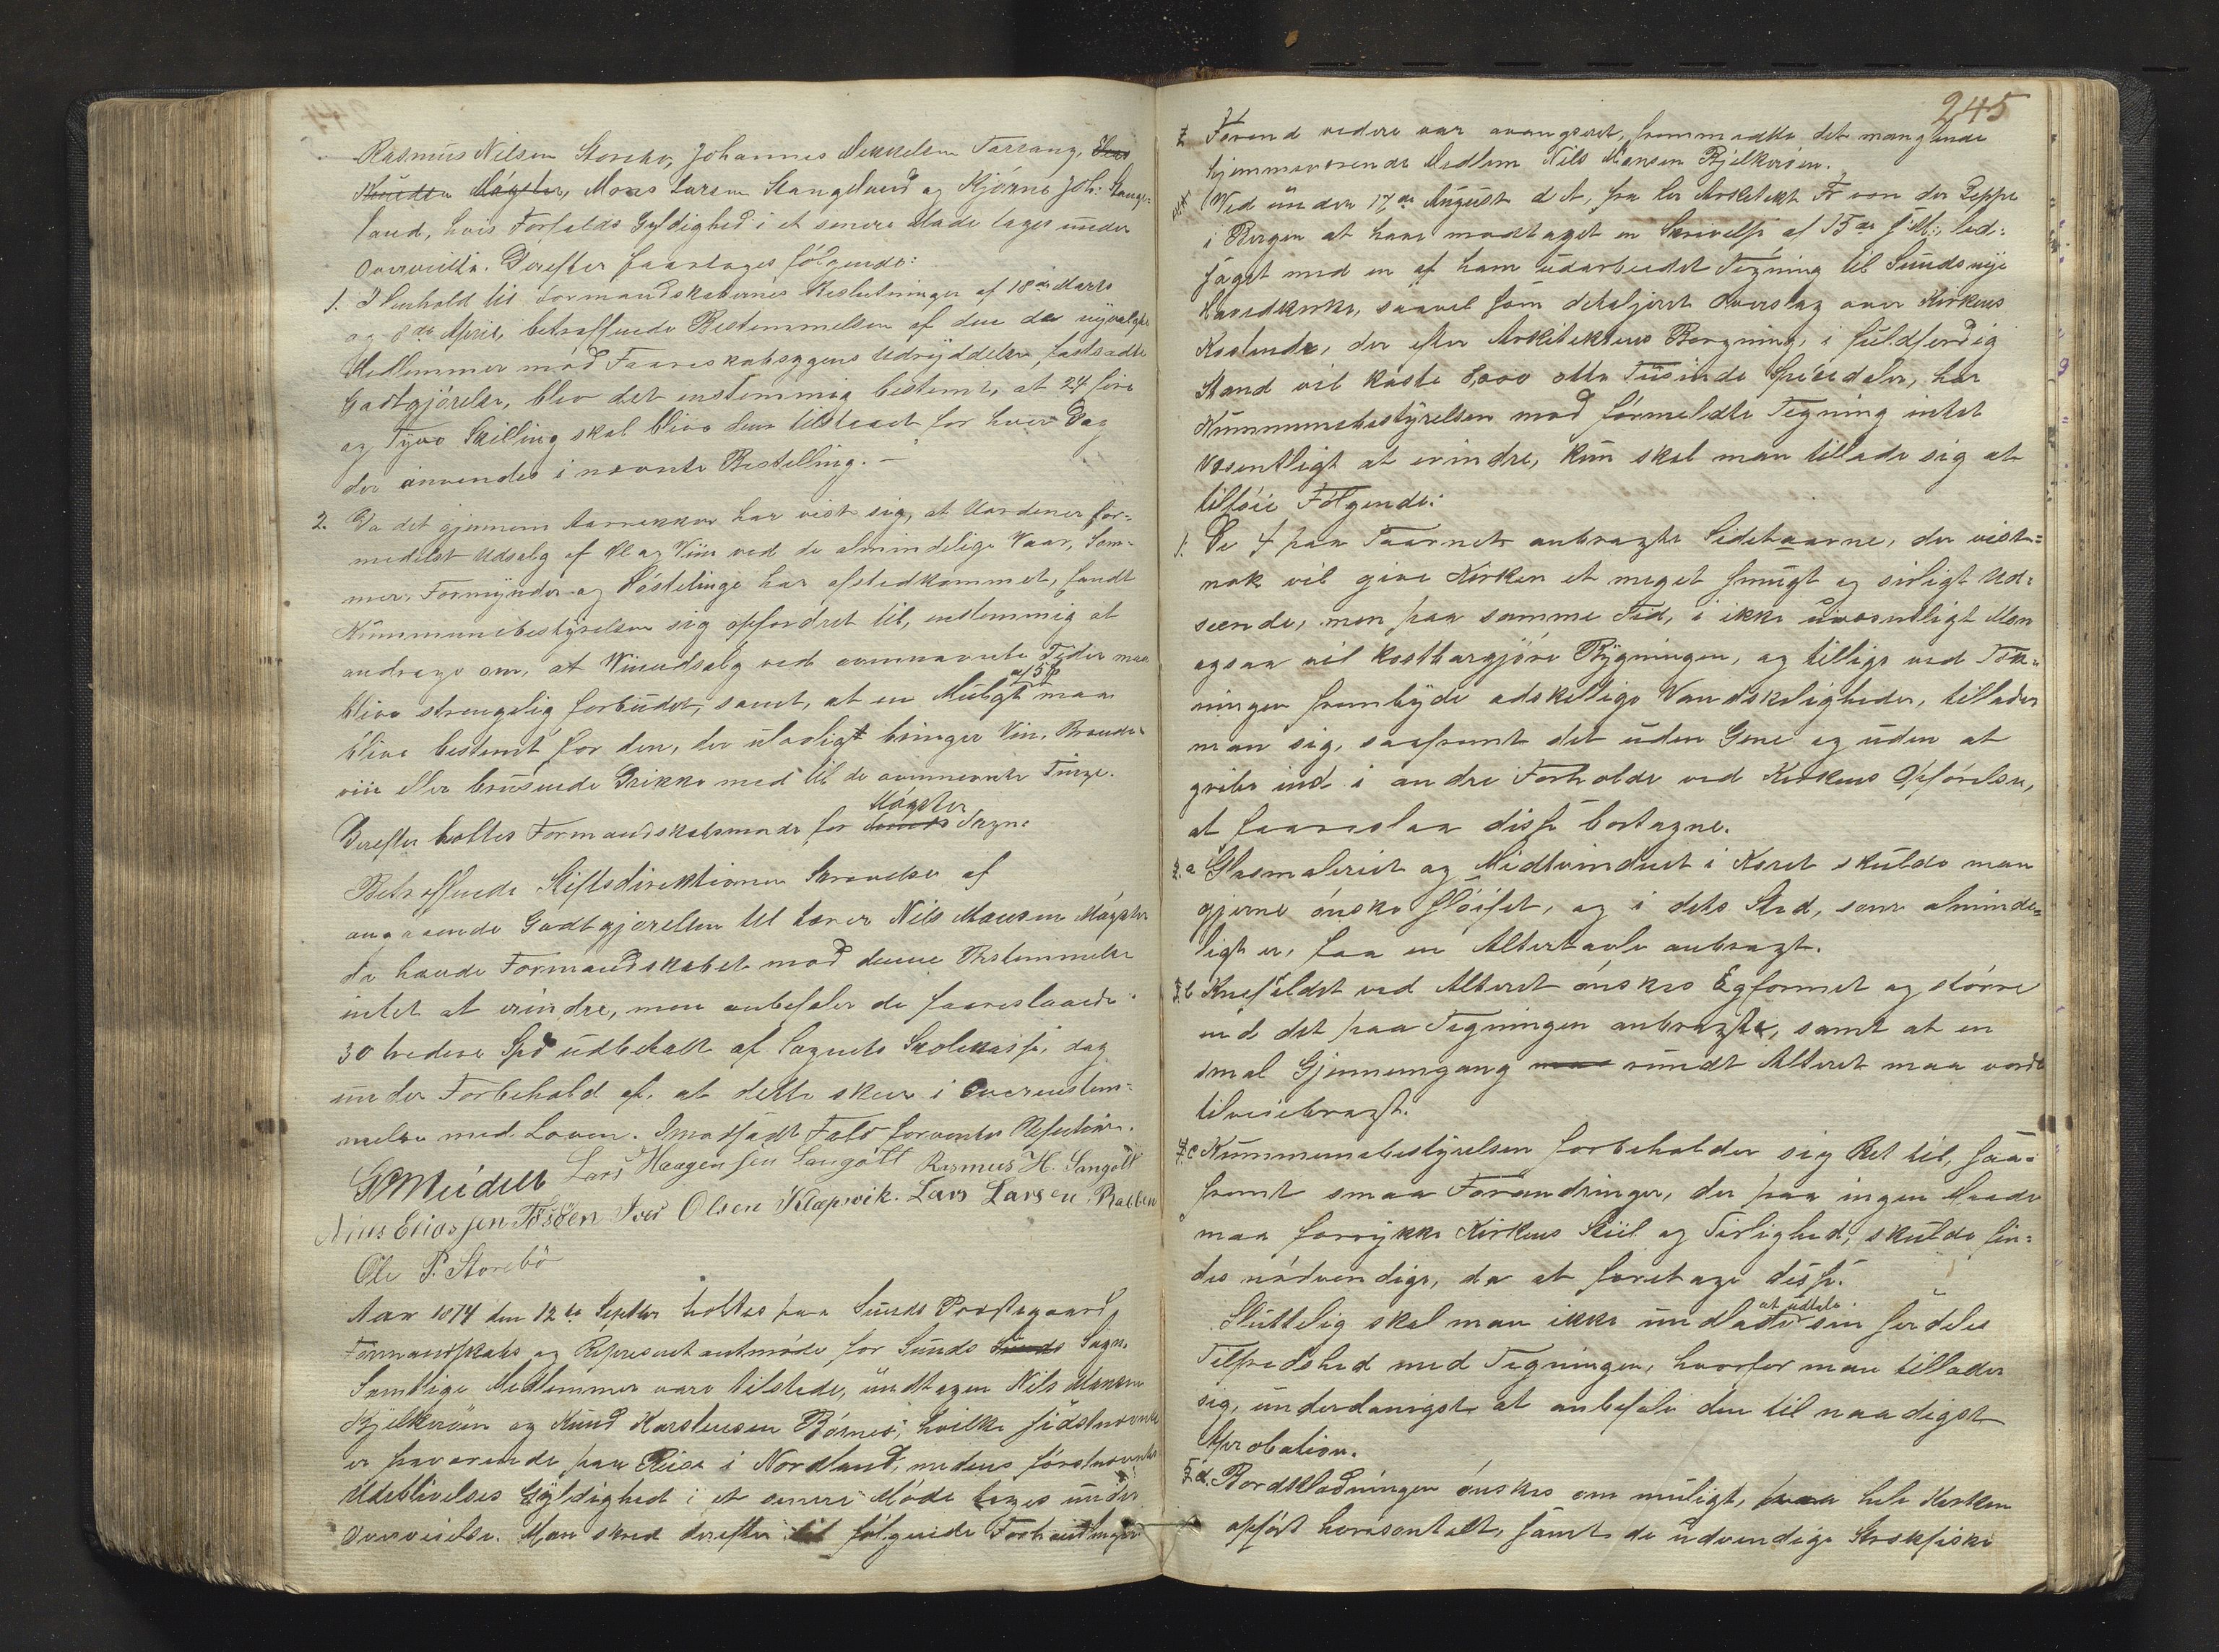 Rasmus Nilsen Storebø, Johannes Mikkelsen Tarrang, Iver
Knudsen Møgster, Mons Larsen Stangeland og Kjørne Joh: Stange-
land, hvis Forfalds Gyldighed i et senere Møde tages under
Overveielse. Derefter foretoges følgende:
1. I Henhold til Formandskabernes Beslutninger af 18de Marts
og 8de April, betræffende Bestemmelsen af den de nyvalgte
Medlemmer mod Faareskabsygens Udryddelse, fastsadte
Godtgjørelse, blev det enstemmig bestemt, at 24 fire
og Tyve Skilling skal blive dem tilstaaet for hver Dag
der anvendes i nævnte Bestilling. —
2. Da det gjennem Aarrækker har vist sig, at Uordener for-
medelst Udsalg af Øl og Viin ved de almindelige Vaar, Som-
mer, Formynder- og Høstetinge har afstedkommet, fandt
Kummunebestyrelsen sig opfordret til, enstemmig at
andrage om, at Viinudsalg ved ovennævnte Tider maa
blive strengelig forbudet, samt, at en Mulgt af 5 Spd maa
blive bestemt for den, der ulovligt bringer Vin, Brænde-
viin eller brusende Drikke med til de ovennævnte Tinge.
Derefter holtes Formandskabsmøde for Sunds Møgster Sogne
Betræffende Stiftsdirektionen Skrivelse af
angaaende Godtgjørelsen til Lærer Nils Mansen Møgster
da havde Formandskabet mod denne Bestemmelse
intet at erindre, men anbefaler de foreslaaede
30 tredive Spd udbetalt af Sognets Skolekasse, dog
under Forbehold af, at dette skeer i Overenstem-
melse med Loven. I modsadt Fald forventes Refution.
G Meidell Lars Haagensen Langøll Rasmus H. Langøll
Nils Eliassen Tøsøen Iver Olsen Klæpvik. Lars Larsen Rabben
Ole P. Storebö
Aar 1874 den 12te Septbr holtes paa Sunds Præstegaard
Formandskabs og Representantmøde for Sunds Sunds Sogn.
Samtlige Medlemmer vare tilstede, undtagen Nils Mansen
Bjelkerøen og Knud Karstensen Bårnes, hvilke sidstnævnte
er fraværende paa Reise i Nordland, medens førstnævntes
Udeblivelses Gyldighed i et senere Møde tages under
Overveielse. Man skred derefter til følgende Forhandlinger
245
Forend videre var avangseret, fremmødte det manglende
hjemmeværende Medlem Nils Mansen Bjelkerøen.
Ved under 17de August d A, fra Hr Arkitekt Fr von der Lippe
i Bergen at have modtaget en Skrivelse af 15de s. M., led-
saget med en af ham udarbeidet Tegning til Sunds nye
Hovedkirke, saavel som detaljeret Overslag over Kirkens
Kostende, der efter Arkitektens Beregning, i fuldferdig
Stand vil koste 8,000 otte Tusinde Speciedaler, har
Kummunebestyrelsen mod formeldte Tegning intet
væsentligt at erindre, kun skal man tillade sig at
tilføie Følgende:
1. De 4 paa Taarnet anbragte Sidetaarne, der vist-
nok vil give Kirken et meget smugt og sirligt Ud-
seende, men paa samme Tid, i ikke uvæsentligt Mon
ogsaa vil kostbargjøre Bygningen, og tillige ved Tæk-
ningen frembyde adskellige Vandskeligheder, tillader
man sig, saafremt det uden Gene og uden at
gribe ind i andre Forholde ved Kirkens Opførelse,
at foreslaa disse bortagne.
2. a Glasmaleriet og Midtvinduet i Koret skulde man
gjerne ønske sløifet, og i dets Sted, som alminde-
ligt er, faa en Altertavle anbragt.
b Knefaldet ved Alteret ønskes Egformet og større
end det paa Tegningen anbragte, samt at en
smal Gjennemgang maa rundt Alteret maa vorde
tilveiebragt.
c Kummunebestyrelsen forbeholder sig Ret til, saa-
fremt smaa Forandringer, der paa ingen Maade
maa forrykke Kirkens Stiil og Sirlighed, skulde fin-
des nødvendige, da at foretage disse.
Sluttelig skal man ikke undlade at udtale sin særdeles
Tilfredshed med Tegningen, hvorfor man tillader
sig, underdanigst at anbefale den til naadigst
Approbation.
d. Bordklædningen ønskes om muligt, paa hele Kirken
opført horisontalt, samt de udvendige